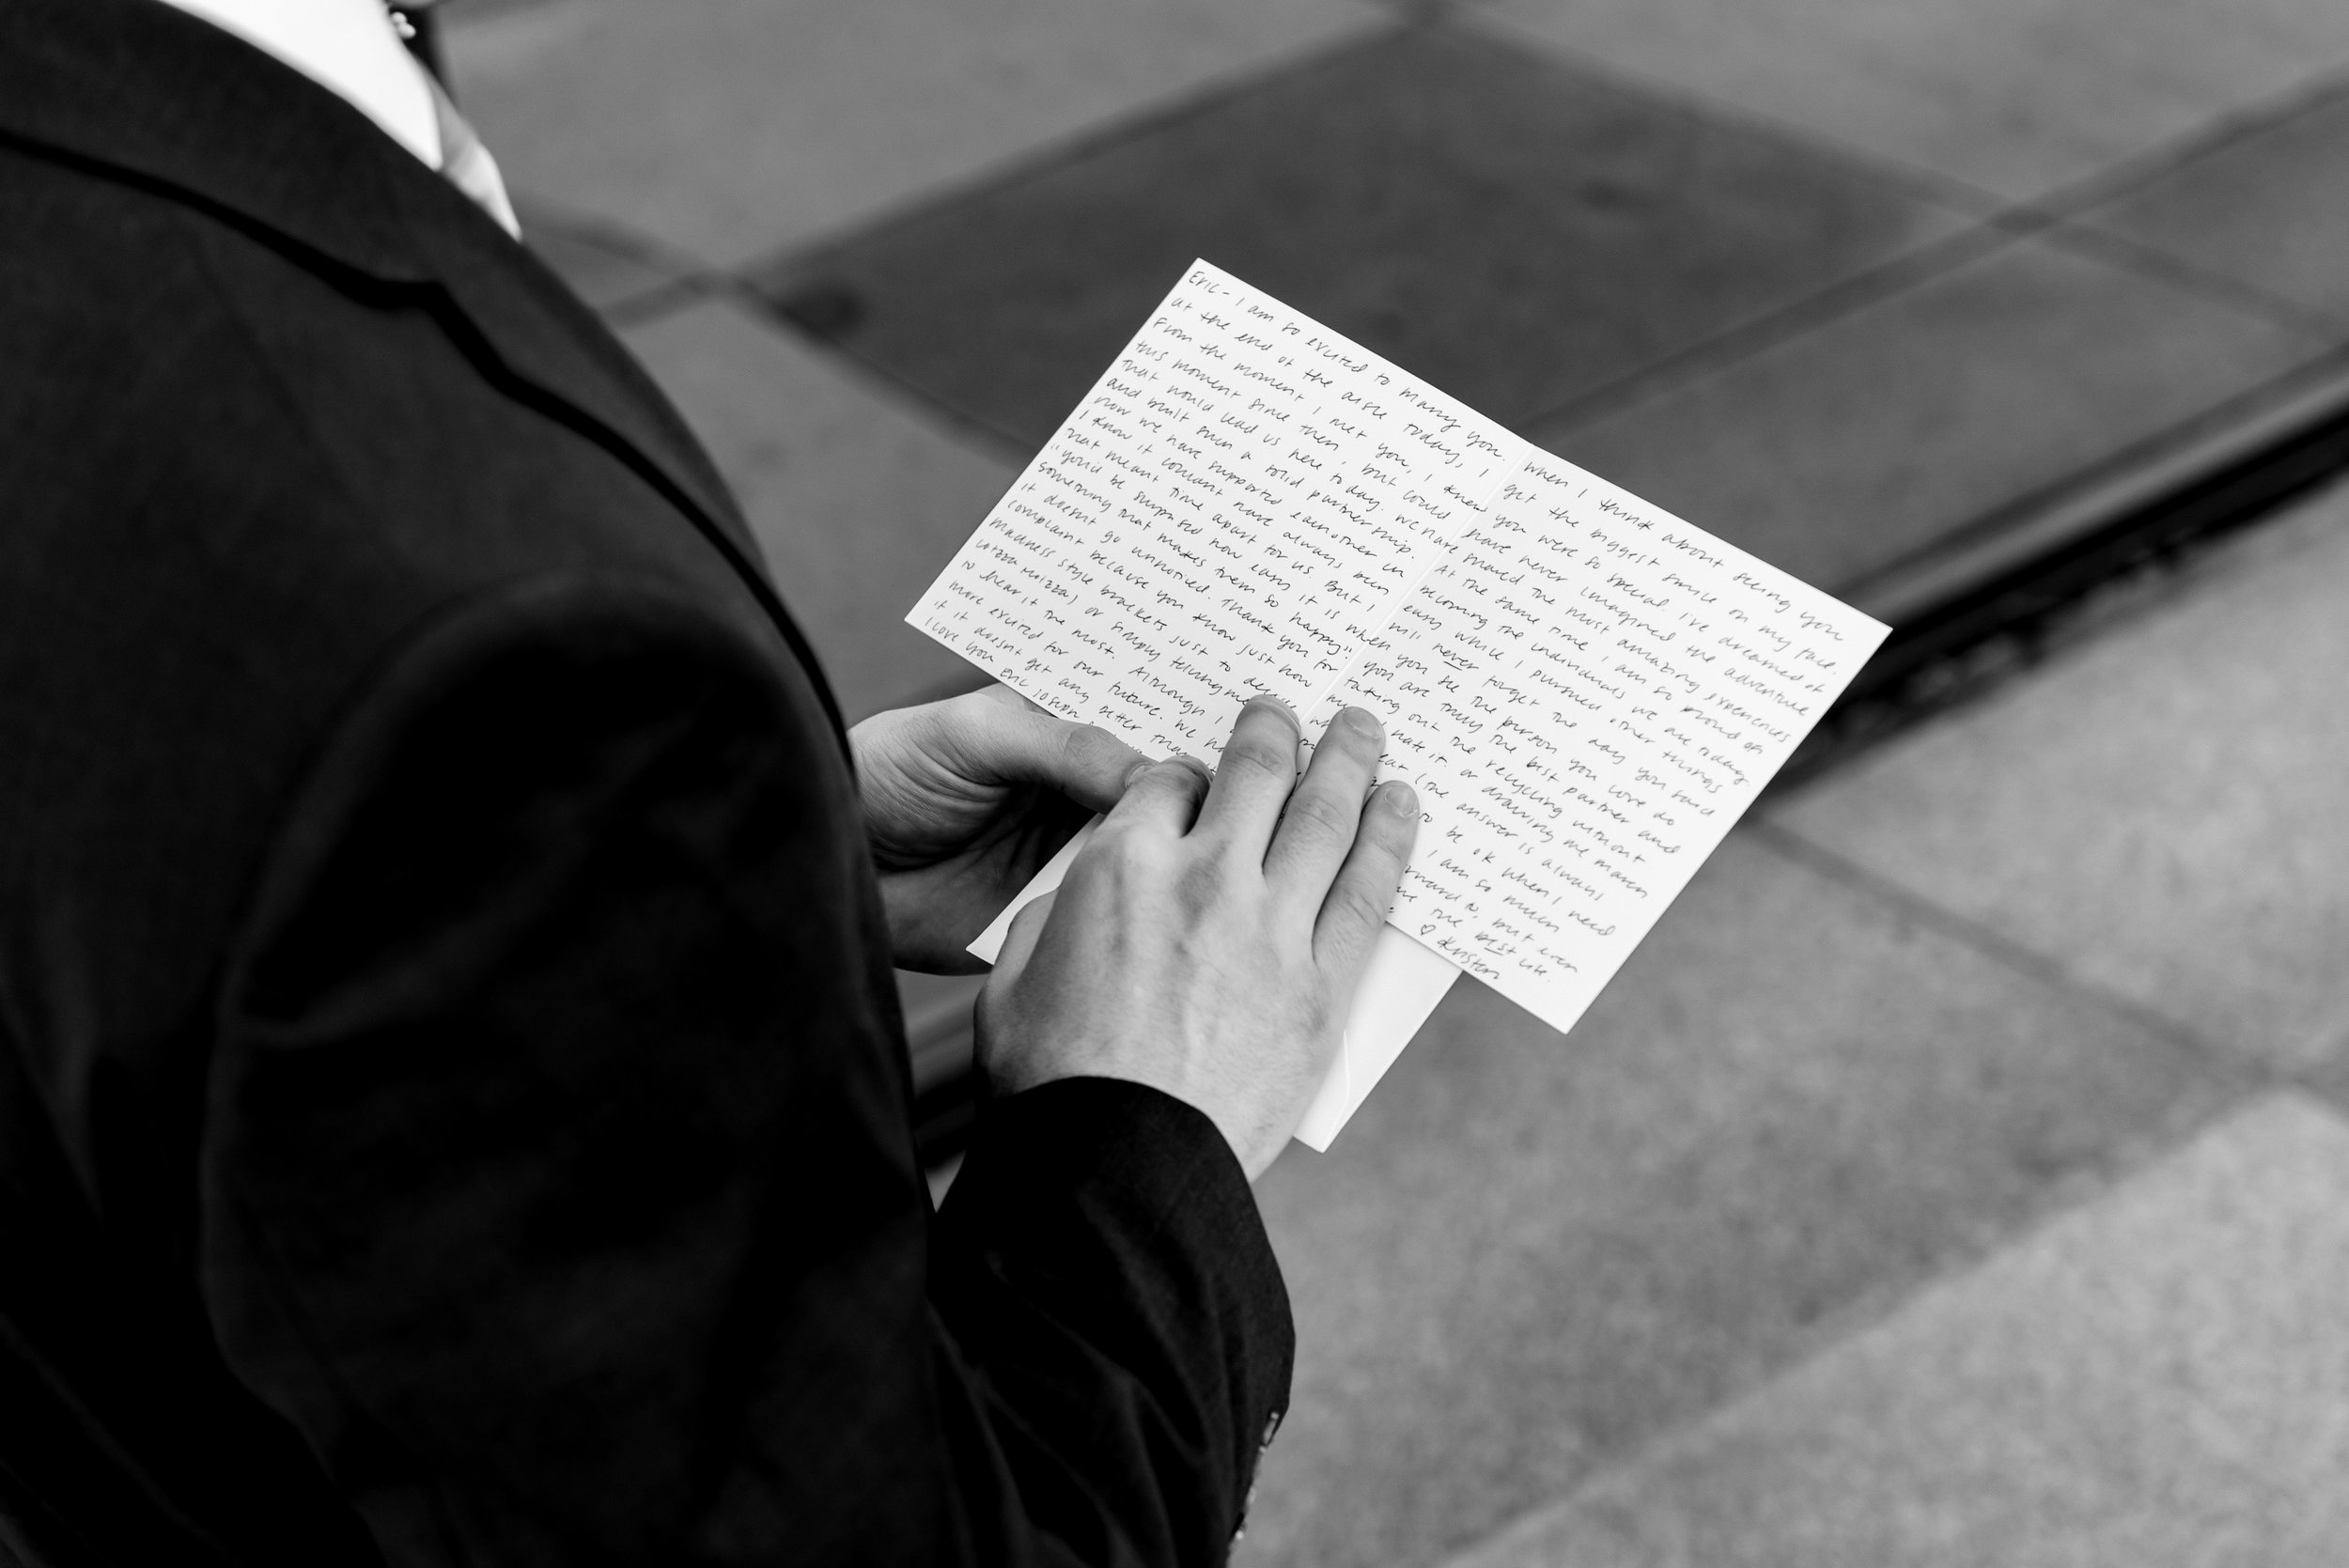 Eric - I am so excited to marry you. When I think about seeing you
at the end of the aisle today, I get the biggest smile on my face.
From the moment I met you, I knew you were so special. I've dreamed of
this moment since then, but could have never imagined the adventure
that would lead us here today. We have shared the most amazing experiences
and built such a solid partnership. At the same time, I am so proud of
how we have supported eachother in becoming the individuals we are today.
I know it couldnt have always been easy while I pursued other things
that meant time apart for us. But I will never forget the day you said
"you'd be surprised how easy it is when you see the person you love do
something that makes them so happy." You are truly the best partner and
it doesnt go unnoticed. Thank you for taking out the recycling without
complaint because you know just how much I hate it or drawing me march
madness style brackets just to decide eat (the answer is always
Lotzza Motzza) or simply telling me to be ok when I need
to hear it the most. Although I I am so much
more excited for our future. We forward to, but even
if it doesnt get any better than the best life.
I love you Eric Joseph ♡ Kristen